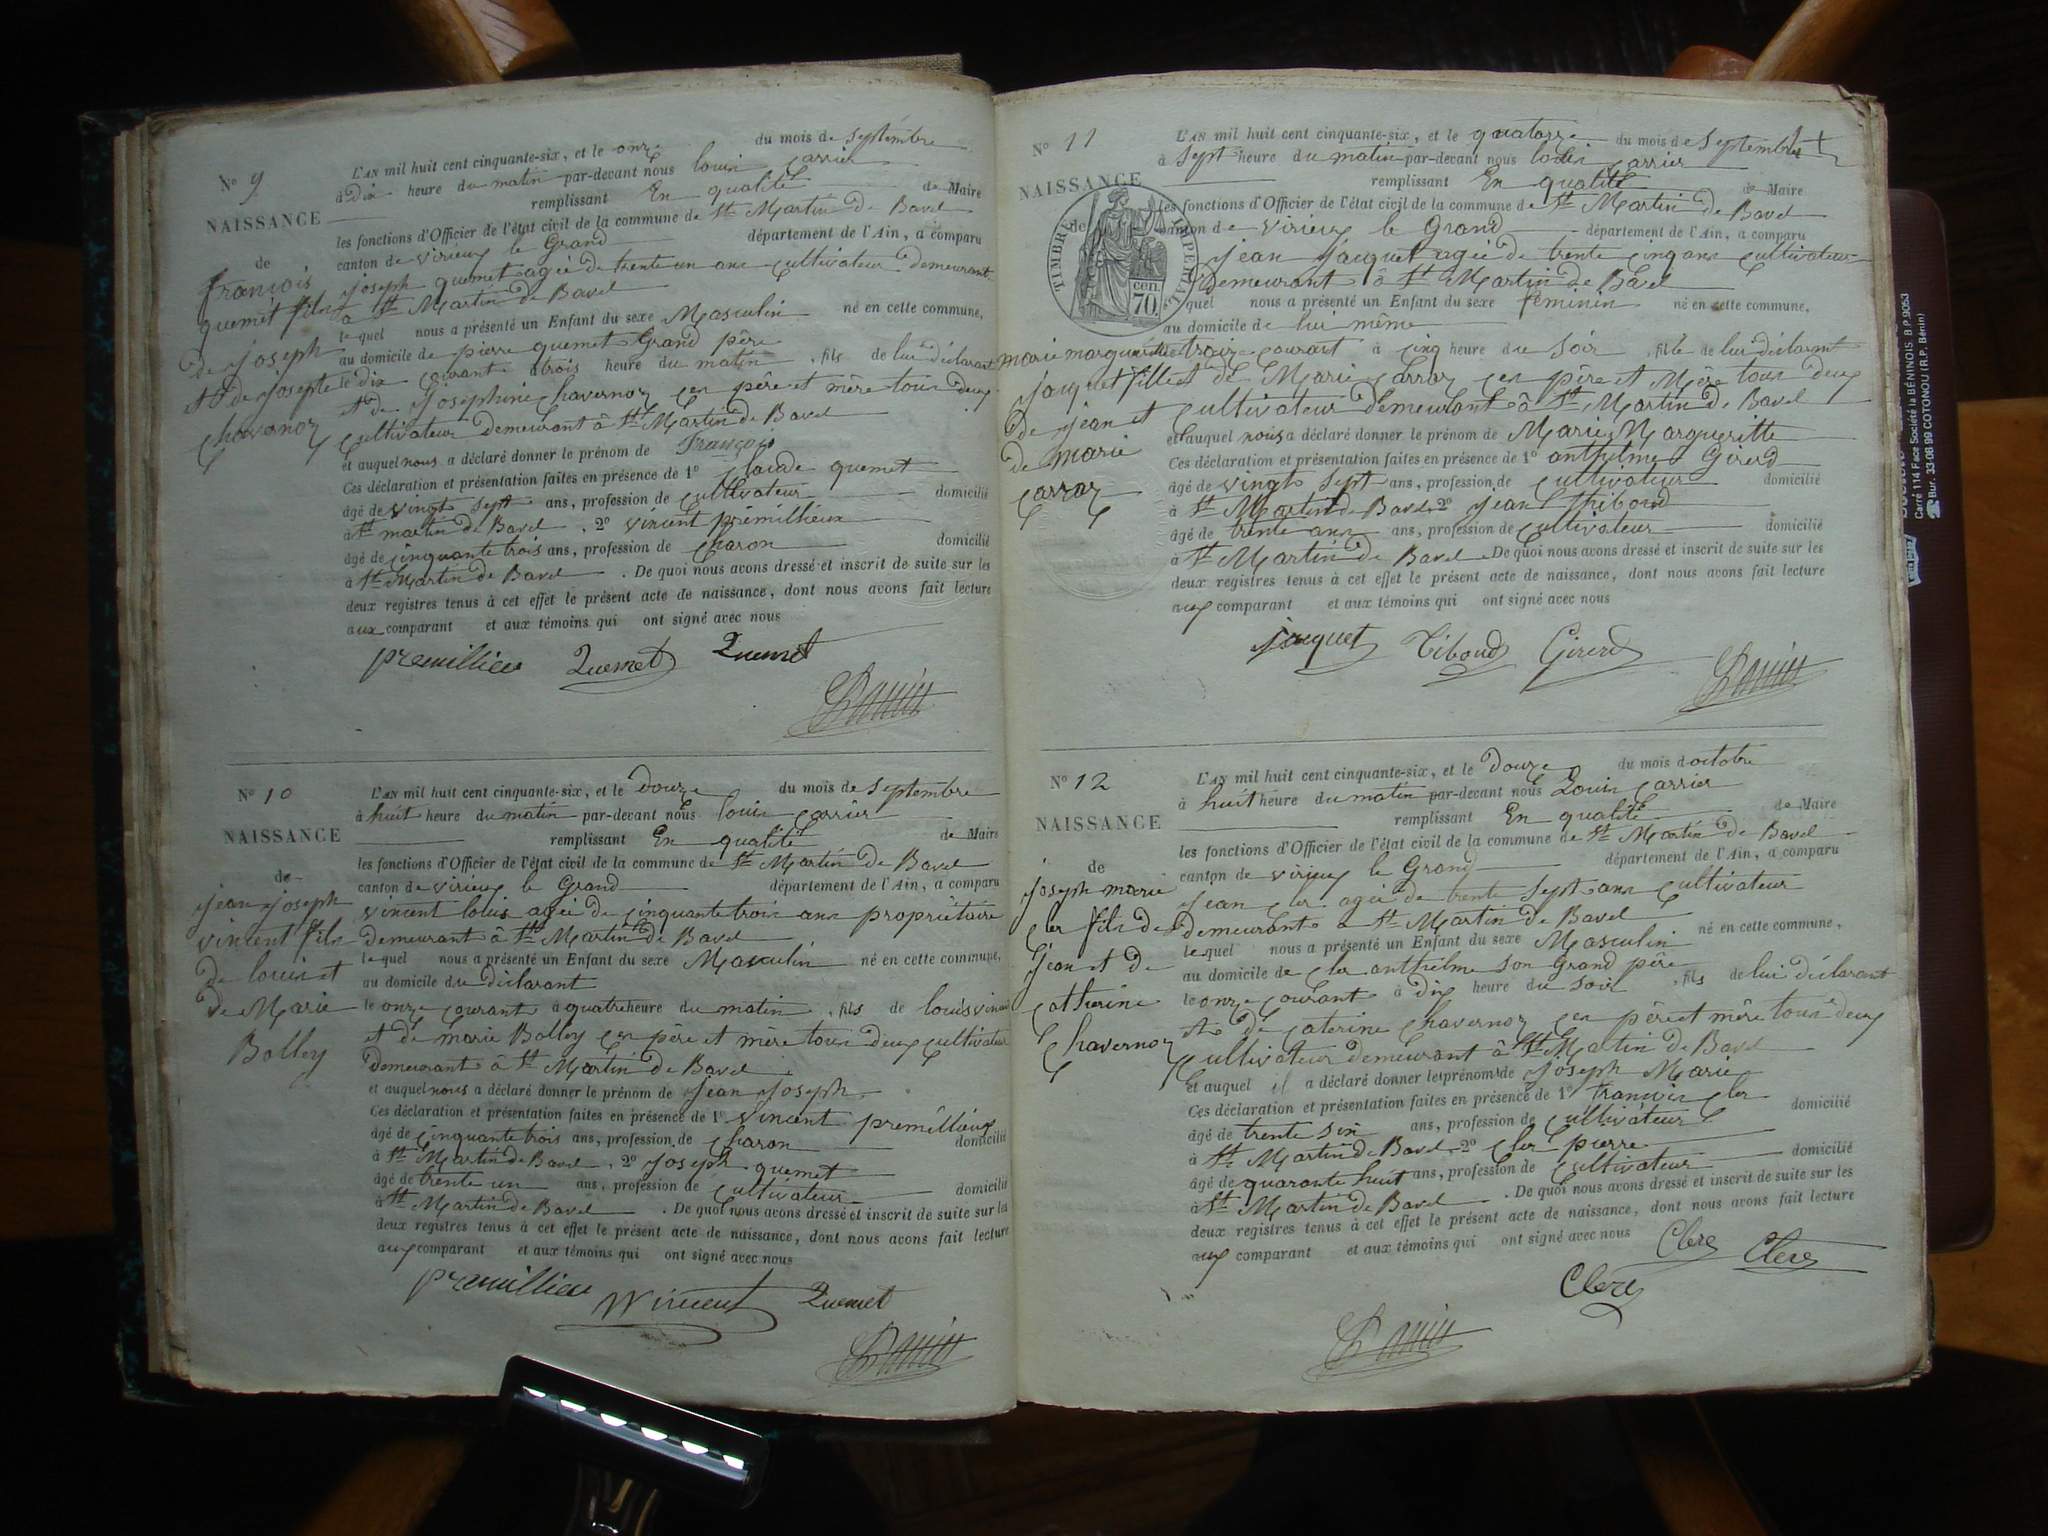 N° 9
NAISSANCE
de
françois
quemet fils
de joseph
et de josepte
chavanoz
L'AN mil huit cent cinquante-six, et le onze du mois de septembre
à dix heure du matin par-devant nous louis carrier
remplissant En qualité de Maire
les fonctions d'Officier de l'état civil de la commune de St Martin De Bavel
canton de virieux le Grand département de l'Ain, a comparu
joseph quemet agée De trente un ans cultivateur Demeurant
à St Martin De Bavel
le quel nous a présenté un Enfant du sexe Masculin né en cette commune,
au domicile de pierre quemet Grand père
le dix courant à trois heure du matin, fils de lui déclarant
et de joséphine chavernoz ces père et mère tous deux
cultivateur Demeurant à St Martin De Bavel
et auquel nous a déclaré donner le prénom de François
Ces déclaration et présentation faites en présence de 1° placide quemet
âgé de vingt sept ans, profession de cultivateur domicilié
à St martin De Bavel, 2° vincent prémillieux
âgé de cinquante trois ans, profession de charon domicilié
à St Martin De Bavel. De quoi nous avons dressé et inscrit de suite sur les
deux registres tenus à cet effet le présent acte de naissance, dont nous avons fait lecture
aux comparant et aux témoins qui ont signé avec nous
premillieu Quemet Quemet
N° 10
NAISSANCE
de
jean joseph
vincent fils
De louis et
De Marie
Bolley
L'AN mil huit cent cinquante-six, et le Douze du mois de septembre
à huit heure du matin par-devant nous louis carrier
remplissant En qualité de Maire
les fonctions d'Officier de l'état civil de la commune de St Martin De Bavel
canton de virieux le Grand département de l'Ain, a comparu
vincent louis agée De cinquante trois ans propriétaire
Demeurant à St Martin De Bavel
le quel nous a présenté un Enfant du sexe Masculin né en cette commune,
au domicile du déclarant
le onze courant à quatre heure du matin, fils de louis vincent
et de marie Bolley ces père et mère tous deux cultivateur
Demeurant à St Martin De Bavel
et auquel nous a déclaré donner le prénom de jean joseph
Ces déclaration et présentation faites en présence de 1° vincent prémillieux
âgé de cinquante trois ans, profession de charon domicilié
à St Martin De Bavel, 2° joseph quemet
âgé de trente un ans, profession de cultivateur domicilié
à St Martin De Bavel. De quoi nous avons dressé et inscrit de suite sur les
deux registres tenus à cet effet le présent acte de naissance, dont nous avons fait lecture
aux comparant et aux témoins qui ont signé avec nous
premillieu Vincent Quemet
N° 11
NAISSANCE
de
TIMBRE IMPERIAL
70 cen.
marie marguerite
jaquet fille
De jean et
de marie
carraz
L'AN mil huit cent cinquante-six, et le quatorze du mois de septembre
à sept heure du matin par-devant nous louis carrier
remplissant En qualité de Maire
les fonctions d'Officier de l'état civil de la commune de St Martin De Bavel
canton de virieux le Grand département de l'Ain, a comparu
jean jaquet agée De trente cinq ans cultivateur
Demeurant à St Martin De Bavel
le quel nous a présenté un Enfant du sexe féminin né en cette commune,
au domicile de lui même
le treize courant à cinq heure du soir, fille de lui déclarant
et de Marie carraz ces père et Mère tous deux
cultivateur Demeurant à St Martin De Bavel
et auquel nous a déclaré donner le prénom de Marie Margueritte
Ces déclaration et présentation faites en présence de 1° anthelme Girerd
âgé de vingt sept ans, profession de cultivateur domicilié
à St Martin De Bavel 2° jean Thiboud
âgé de trente ans ans, profession de cultivateur domicilié
à St Martin De Bavel. De quoi nous avons dressé et inscrit de suite sur les
deux registres tenus à cet effet le présent acte de naissance, dont nous avons fait lecture
aux comparant et aux témoins qui ont signé avec nous
jaquet Tiboud Girerd
N° 12
NAISSANCE
de
joseph marie
cler fils de
jean et de
catherine
chavernoz
L'AN mil huit cent cinquante-six, et le Douze du mois d octobre
à huit heure du matin par-devant nous Louis carrier
remplissant En qualité de Maire
les fonctions d'Officier de l'état civil de la commune de St Martin De Bavel
canton de virieux le Grand département de l'Ain, a comparu
jean cler agée de trente sept ans cultivateur
demeurant à St Martin De Bavel
le quel nous a présenté un Enfant du sexe Masculin né en cette commune,
au domicile de cler anthelme son Grand père
le onze courant à dix heure du soir, fils de lui déclarant
et de caterine chavernoz ces père et mère tous deux
cultivateur demeurant à St Martin De Bavel
et auquel il a déclaré donner les prénom de joseph Marie
Ces déclaration et présentation faites en présence de 1° francois cler
âgé de trente six ans, profession de cultivateur domicilié
à St Martin De Bavel 2° cler pierre
âgé de quarante huit ans, profession de cultivateur domicilié
à St Martin De Bavel. De quoi nous avons dressé et inscrit de suite sur les
deux registres tenus à cet effet le présent acte de naissance, dont nous avons fait lecture
aux comparant et aux témoins qui ont signé avec nous
Clerc Clerc
Clerc
Carré 114 Face Société la BÉNINOIS B.P. 9053
Bur. 33-08 99 COTONOU (R.P. Bénin)